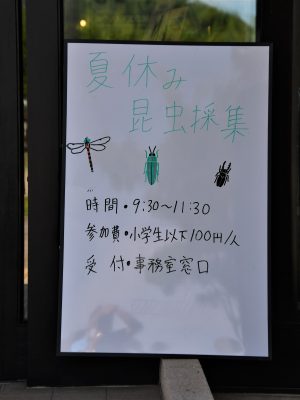 夏休み
昆虫採集
時間・9:30〜11:30
参加費・小学生以下100円/人
受付・事務室窓口